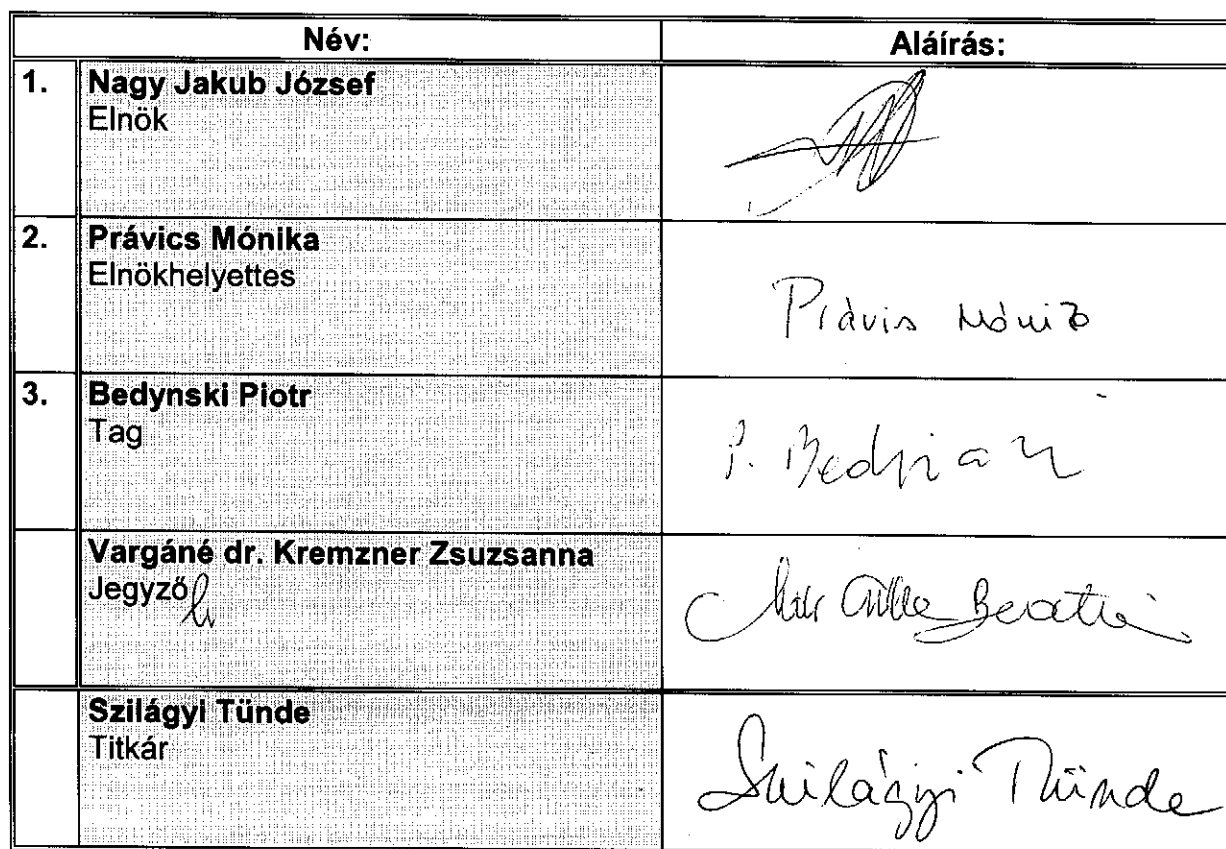 Név: Aláírás:
1. Nagy Jakub József
Elnök
2. Právics Mónika
Elnökhelyettes
Právics Mónika
3. Bedynski Piotr
Tag
P.
Vargáné dr. Kremzner Zsuzsanna
Jegyző
Szilágyi Tünde
Titkár
Szilágyi Tünde